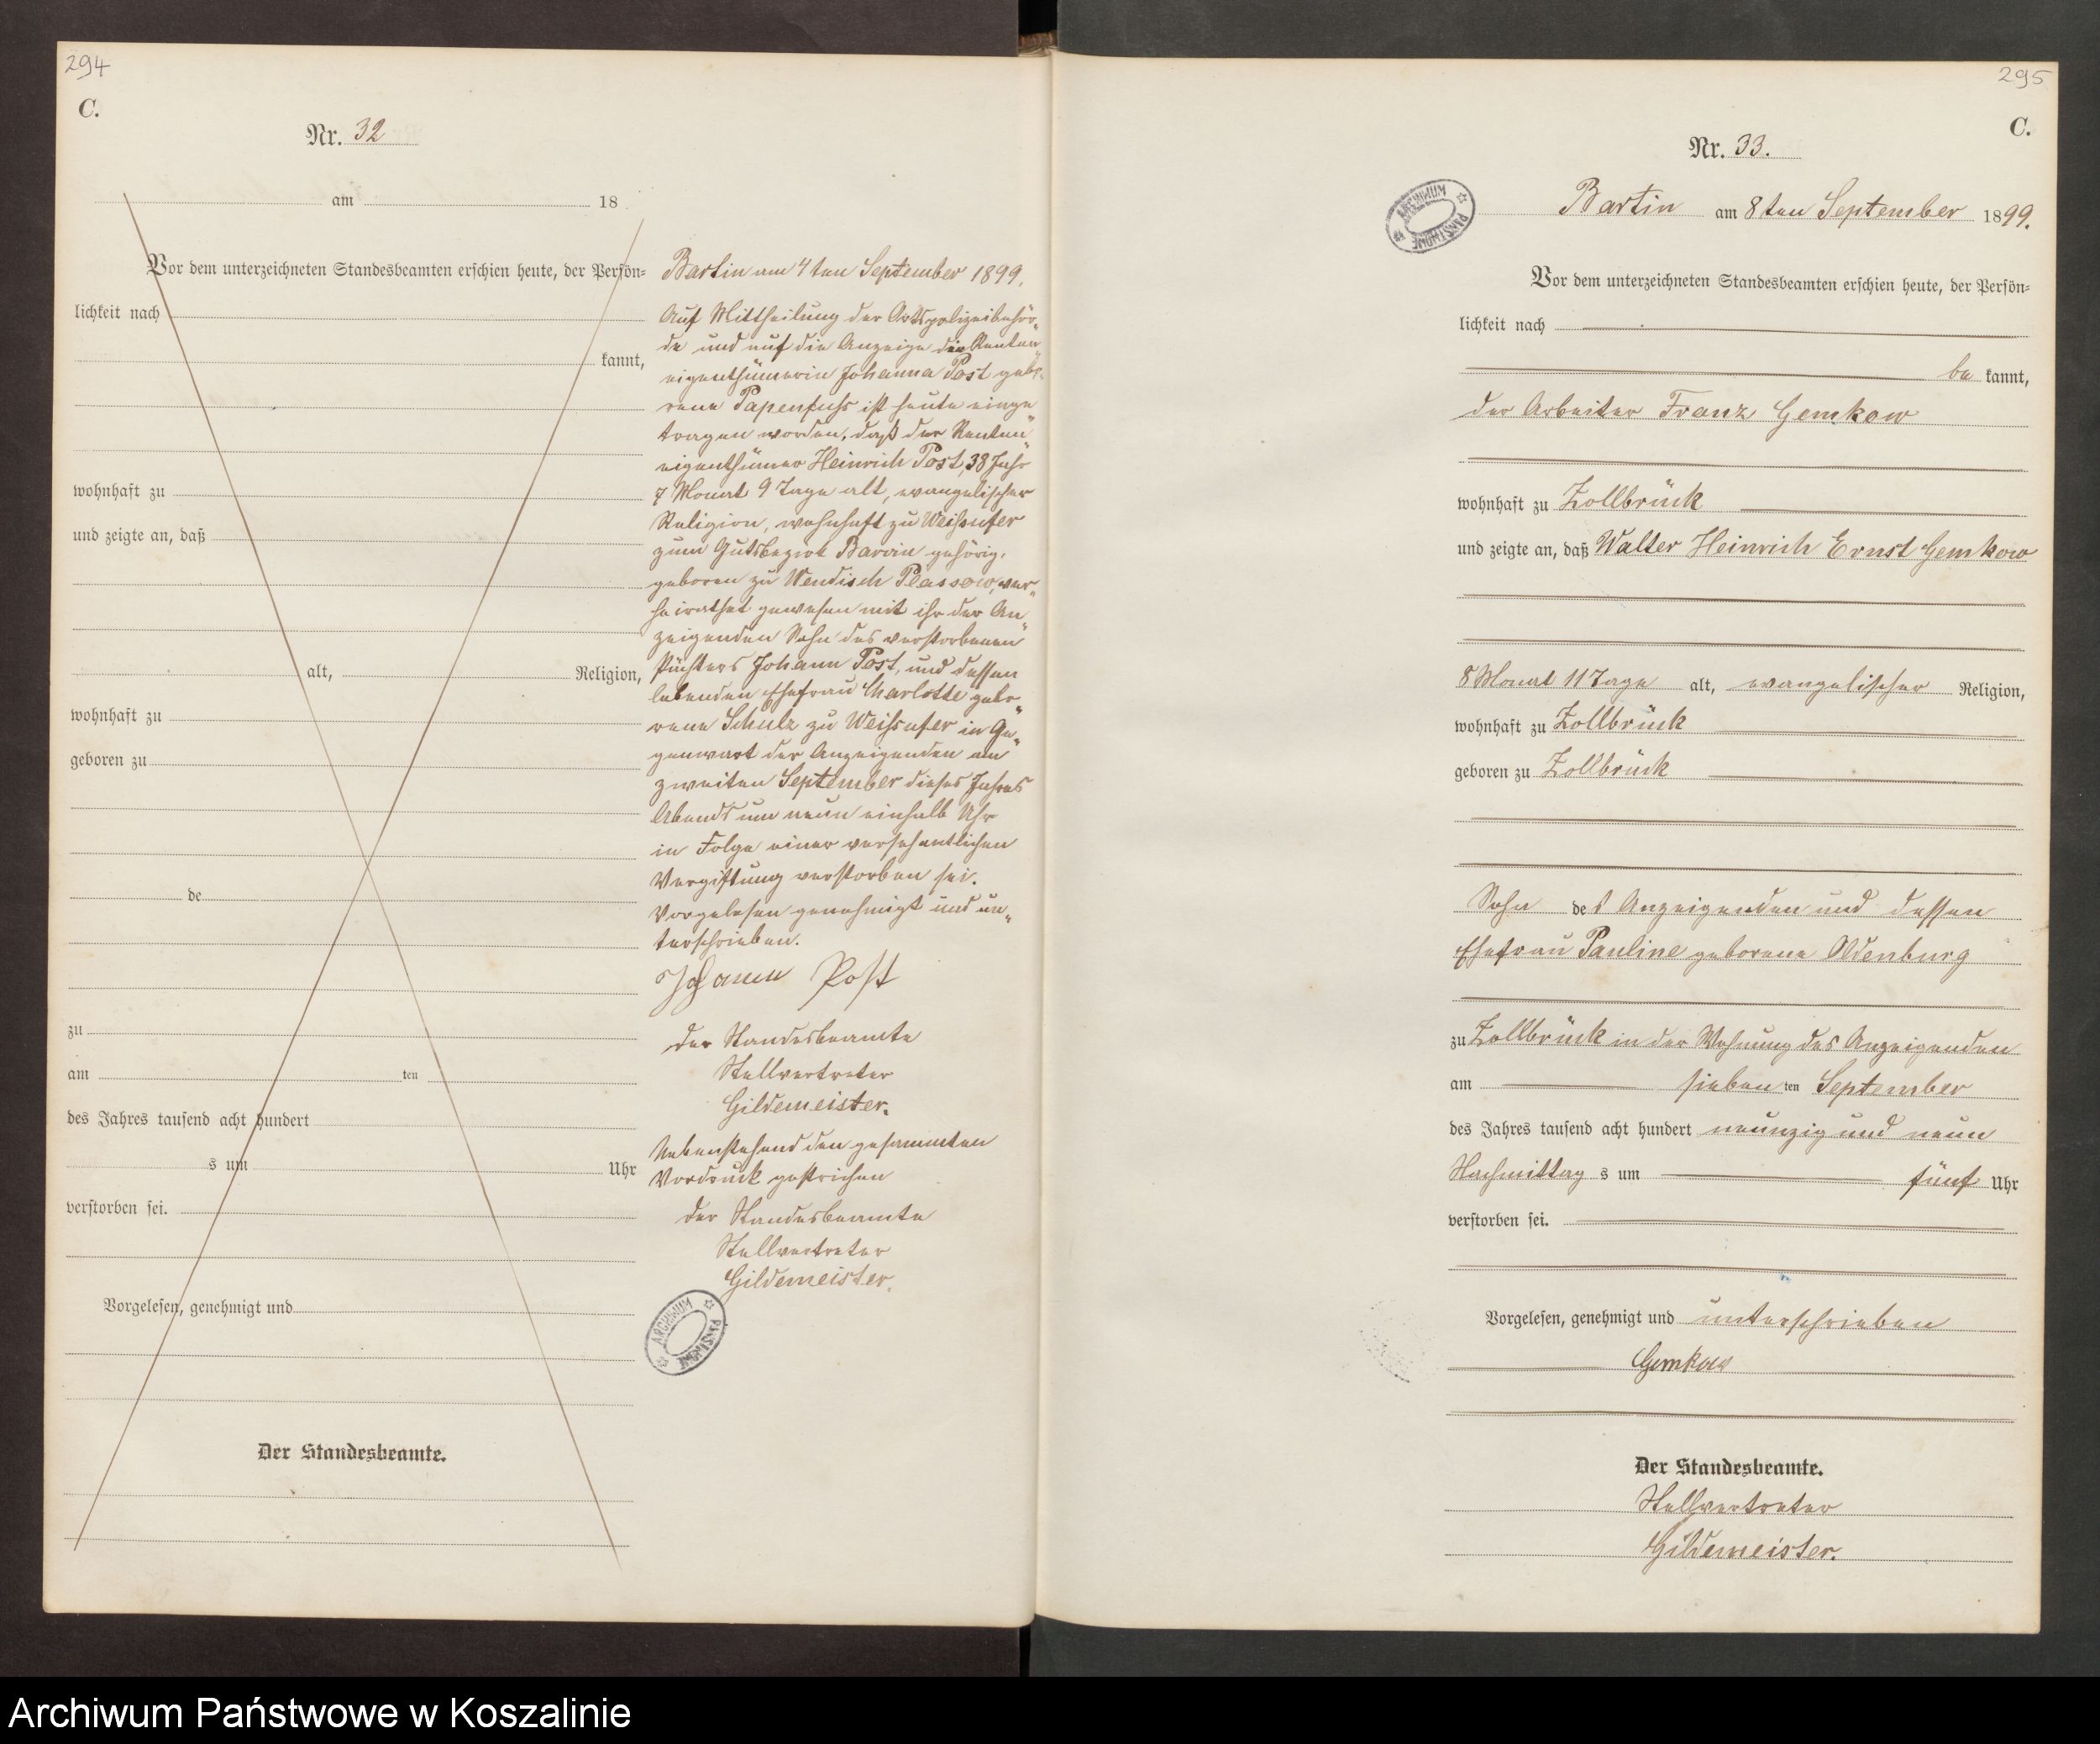 294
C.
Nr. 32
am 18
Vor dem unterzeichneten Standesbeamten erschien heute, der Persön=
lichkeit nach
kannt,
wohnhaft zu
und zeigte an, daß
alt, Religion,
wohnhaft zu
geboren zu
de
zu
am ten
des Jahres tausend acht hundert
s um Uhr
verstorben sei.
Vorgelesen, genehmigt und
Der Standesbeamte.
Bartin am 4ten September 1899.
Auf Mittheilung der Ortspolizeibehör„
de und auf die Anzeige die Renten„
eigenthümerin Johanna Post gebo„
rene Papenfuhs ist heute einge„
tragen worden, daß der Renten„
eigenthümer Heinrich Post, 38 Jahr
7 Monat 9 Tage alt, evangelischer
Religion, wohnhaft zu Weißufer
zum Gutsbezirk Barvin gehörig,
geboren zu Wendisch Plassow, ver„
heirathet gewesen mit ihr der An„
zeigenden Sohn des verstorbenen
Pächters Johann Post, und dessen
lebenden Ehefrau Charlotte gebo„
rene Schulz zu Weißufer in Ge„
genwart der Anzeigenden am
zweiten September dieses Jahres
Abends um neun einhalb Uhr
in Folge einer versehentlichen
Vergiftung verstorben sei.
Vorgelesen genehmigt und un„
terschrieben.
Johann Post
Der Standesbeamte
Stellvertreter
Gildemeister.
Nebenstehend den gesammten
Vordruck gestrichen
Der Standesbeamte
Stellvertreter
Gildemeister.
ARCHIWUM PAŃSTWOWE
295
C.
Nr. 33.
ARCHIWUM PAŃSTWOWE
Bartin am 8ten September 1899.
Vor dem unterzeichneten Standesbeamten erschien heute, der Persön=
lichkeit nach
be kannt,
der Arbeiter Franz Gemkow
wohnhaft zu Zollbrück
und zeigte an, daß Walter Heinrich Ernst Gemkow
8 Monat 11 Tage alt, evangelischer Religion,
wohnhaft zu Zollbrück
geboren zu Zollbrück
Sohn des Anzeigenden und dessen
Ehefrau Pauline geborene Oldenburg
zu Zollbrück in der Wohnung des Anzeigenden
am sieben ten September
des Jahres tausend acht hundert neunzig und neun
Nachmittag s um fünf Uhr
verstorben sei.
Vorgelesen, genehmigt und unterschrieben
Gemkow
Der Standesbeamte.
Stellvertreter
Gildemeister.
Archiwum Państwowe w Koszalinie